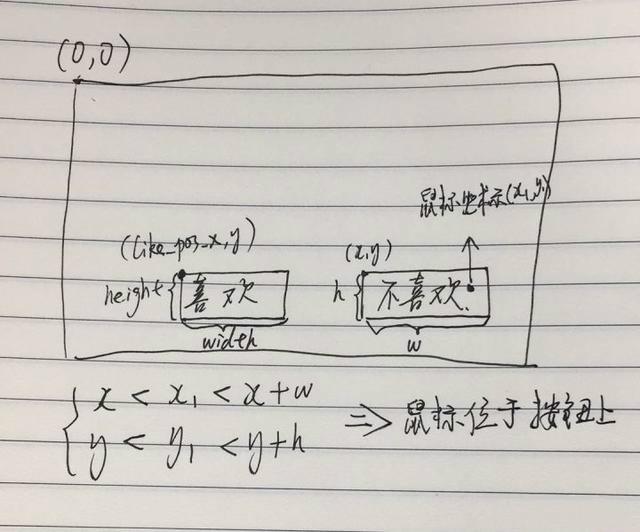 (0,0)
鼠标坐标(x₁,y₁)
(like_pos_x,y)
(x,y)
height
喜欢
h
不喜欢
width
w
x < x₁ < x+w
y < y₁ < y+h
⇒ 鼠标位于按钮上